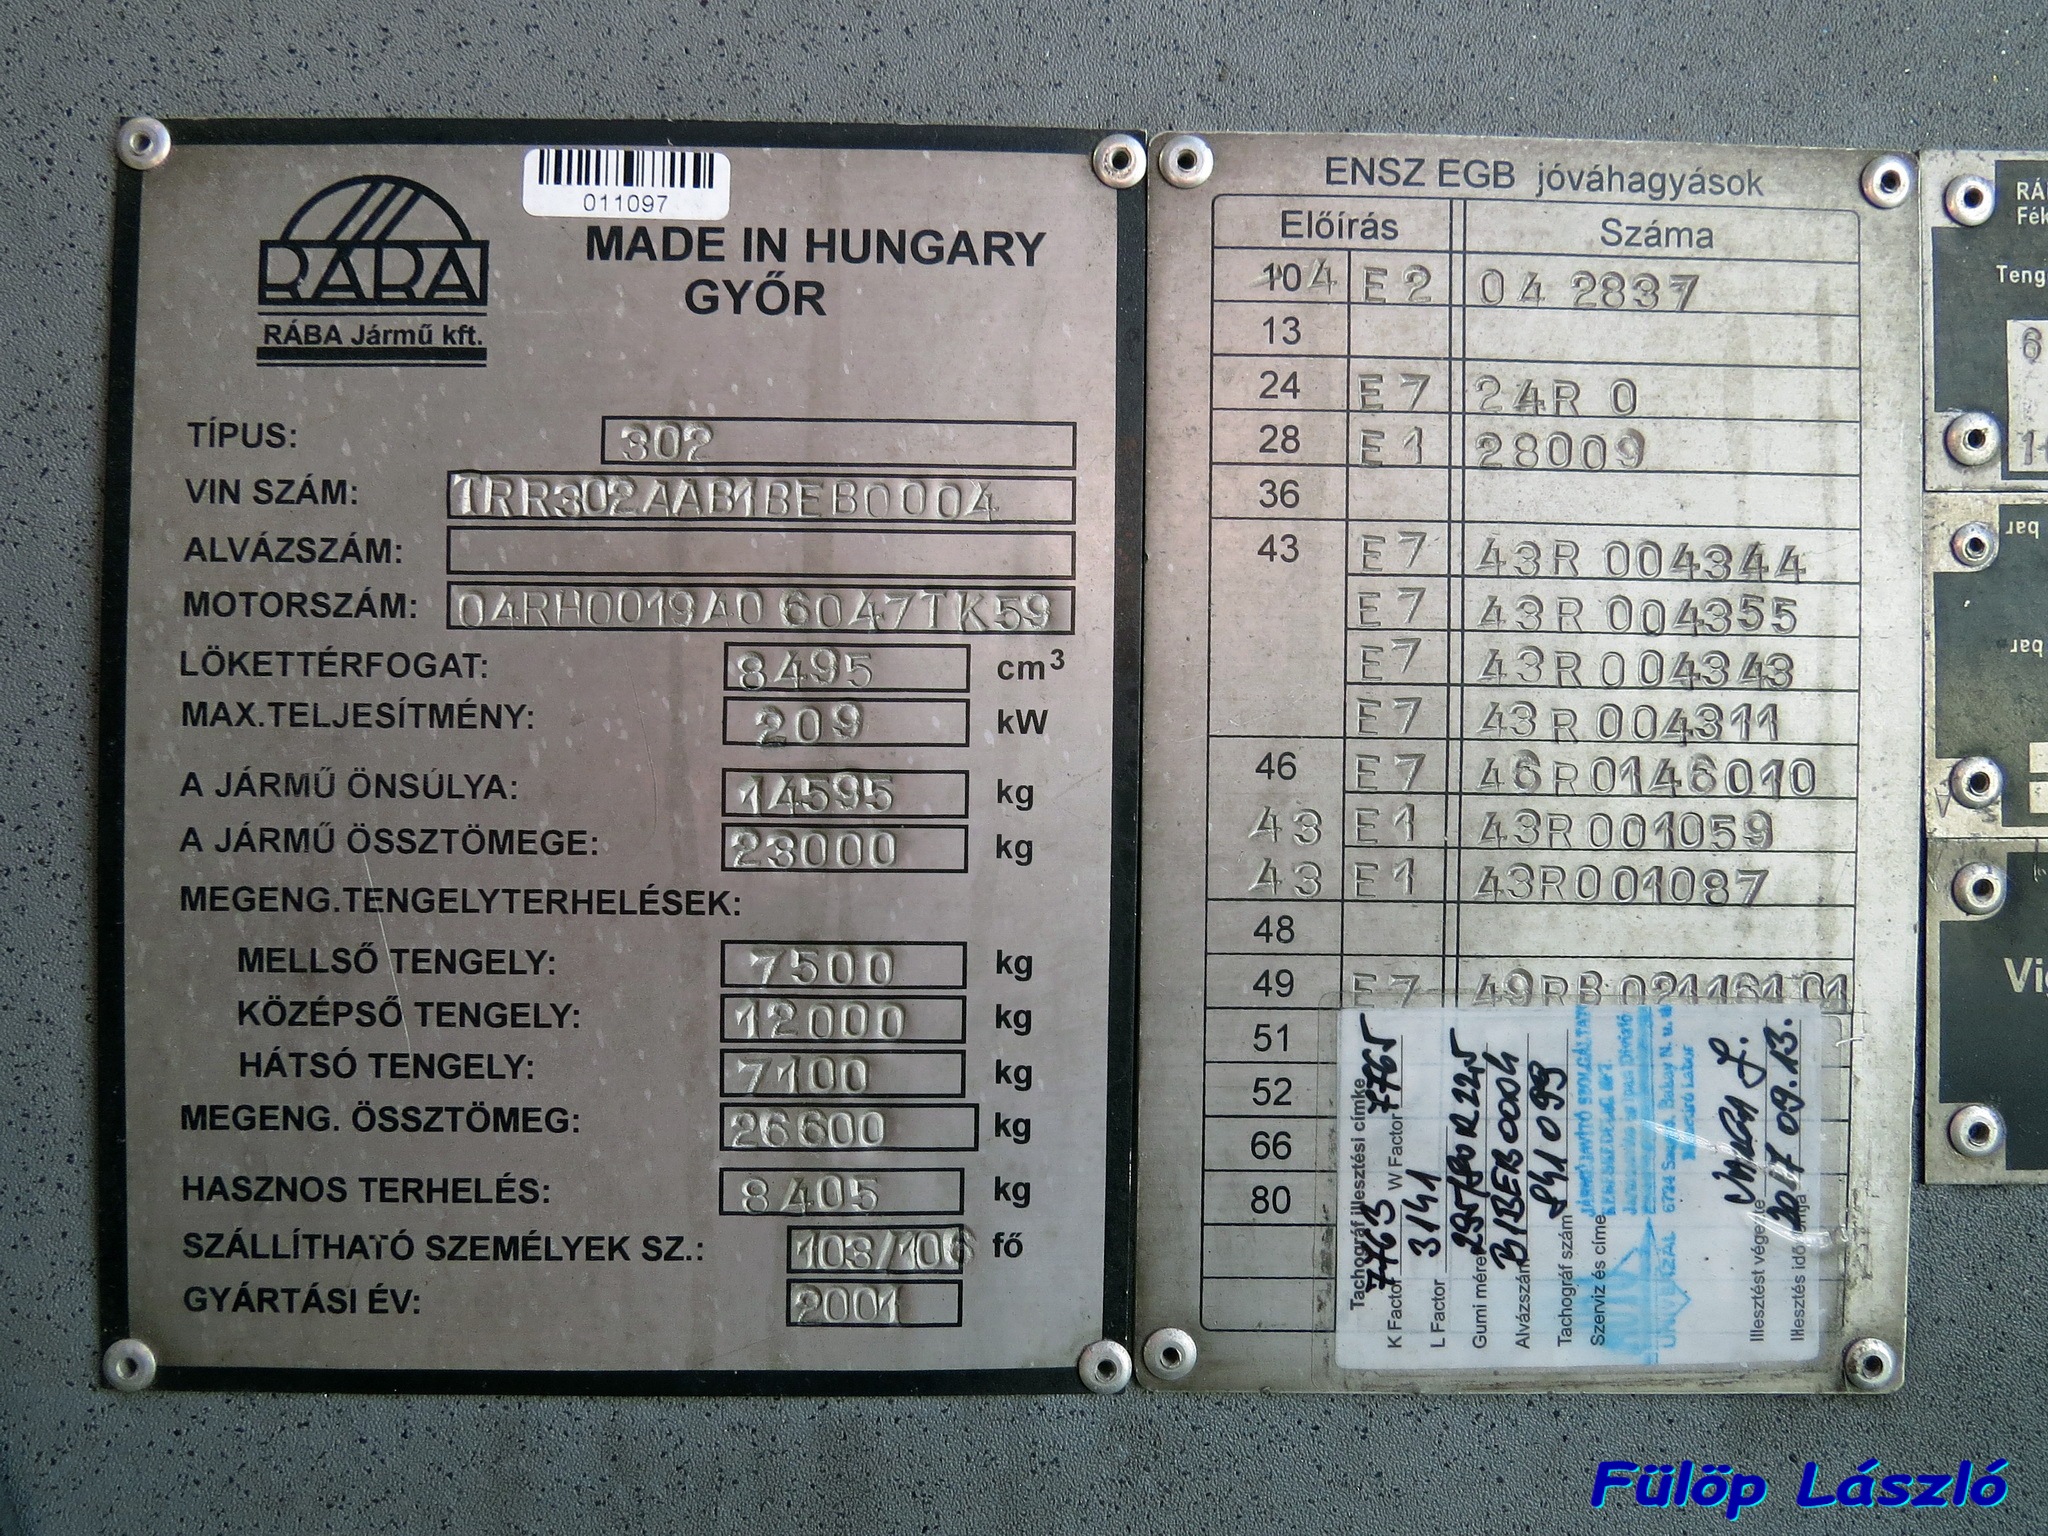 011097
RÁBA
RÁBA Jármű kft.
MADE IN HUNGARY
GYŐR
TÍPUS: 302
VIN SZÁM: TRR302AAB1BEB0004
ALVÁZSZÁM:
MOTORSZÁM: 04RH0019A0 6047TK59
LÖKETTÉRFOGAT: 8495 cm³
MAX.TELJESÍTMÉNY: 209 kW
A JÁRMŰ ÖNSÚLYA: 14595 kg
A JÁRMŰ ÖSSZTÖMEGE: 23000 kg
MEGENG.TENGELYTERHELÉSEK:
MELLSŐ TENGELY: 7500 kg
KÖZÉPSŐ TENGELY: 12000 kg
HÁTSÓ TENGELY: 7100 kg
MEGENG. ÖSSZTÖMEG: 26600 kg
HASZNOS TERHELÉS: 8405 kg
SZÁLLÍTHATÓ SZEMÉLYEK SZ.: 103/106 fő
GYÁRTÁSI ÉV: 2001
ENSZ EGB jóváhagyások
Előírás Száma
104 E2 04 2837
13
24 E7 24R 0
28 E1 28009
36
43 E7 43R 004344
E7 43R 004355
E7 43R 004343
E7 43R 004311
46 E7 46R0146010
43 E1 43R001059
43 E1 43R001087
48
49 E7 49RB 02116101
51
52
66
80
Tachográf illesztési címke
K Factor 7763 W Factor 7765
L Factor 3141
Gumi mére 295/80R22,5
Alvázszám B1BEB0004
Tachográf szám 841099
Szerviz és címe
UNIVERZÁL
Illesztést végezte Varga J.
Illesztés idő 2017 09.13.
RÁ
Fék
Teng
6
1
bar
bar
Vi
Fülöp László